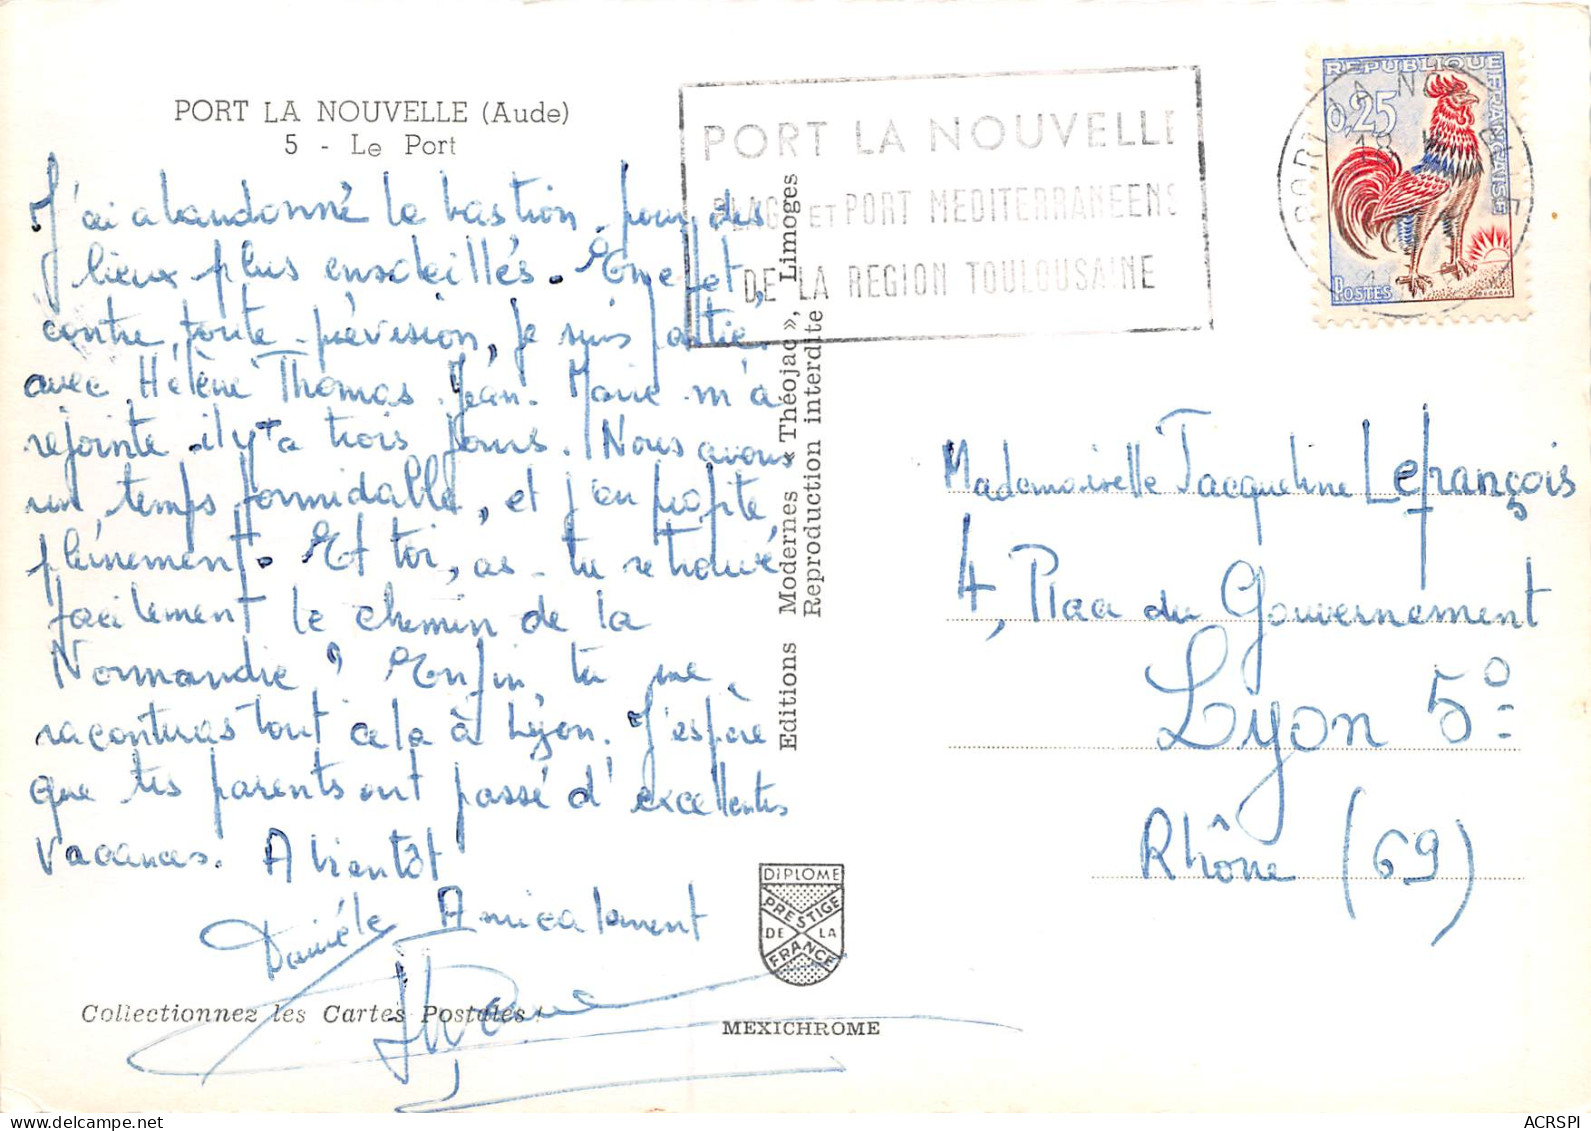 PORT LA NOUVELLE (Aude)
5 - Le Port
J'ai abandonné le bastion pour des
lieux plus ensoleillés. En effet,
contre toute prévision, je suis partie
avec Hélène Thomas. Jean-Marie m'a
rejointe il y a trois jours. Nous avons
un temps formidable, et j'en profite
pleinement. Et toi, as-tu retrouvé
facilement le chemin de la
Normandie ? Enfin, tu me
raconteras tout cela à Lyon. J'espère
que tes parents ont passé d'excellentes
vacances. A bientôt
Amicalement
Danièle
Collectionnez les Cartes Postales !
Editions Modernes « Théojac », Limoges
Reproduction interdite
DIPLOME
PRESTIGE
DE LA
FRANCE
MEXICHROME
PORT LA NOUVELLE
PLAGE ET PORT MEDITERRANEENS
DE LA REGION TOULOUSAINE
REPUBLIQUE
FRANÇAISE
0,25
POSTES
PORT LA NOUVELLE
Mademoiselle Jacqueline Lefrançois
4, Place du Gouvernement
Lyon 5º
Rhône (69)
ACRSPI